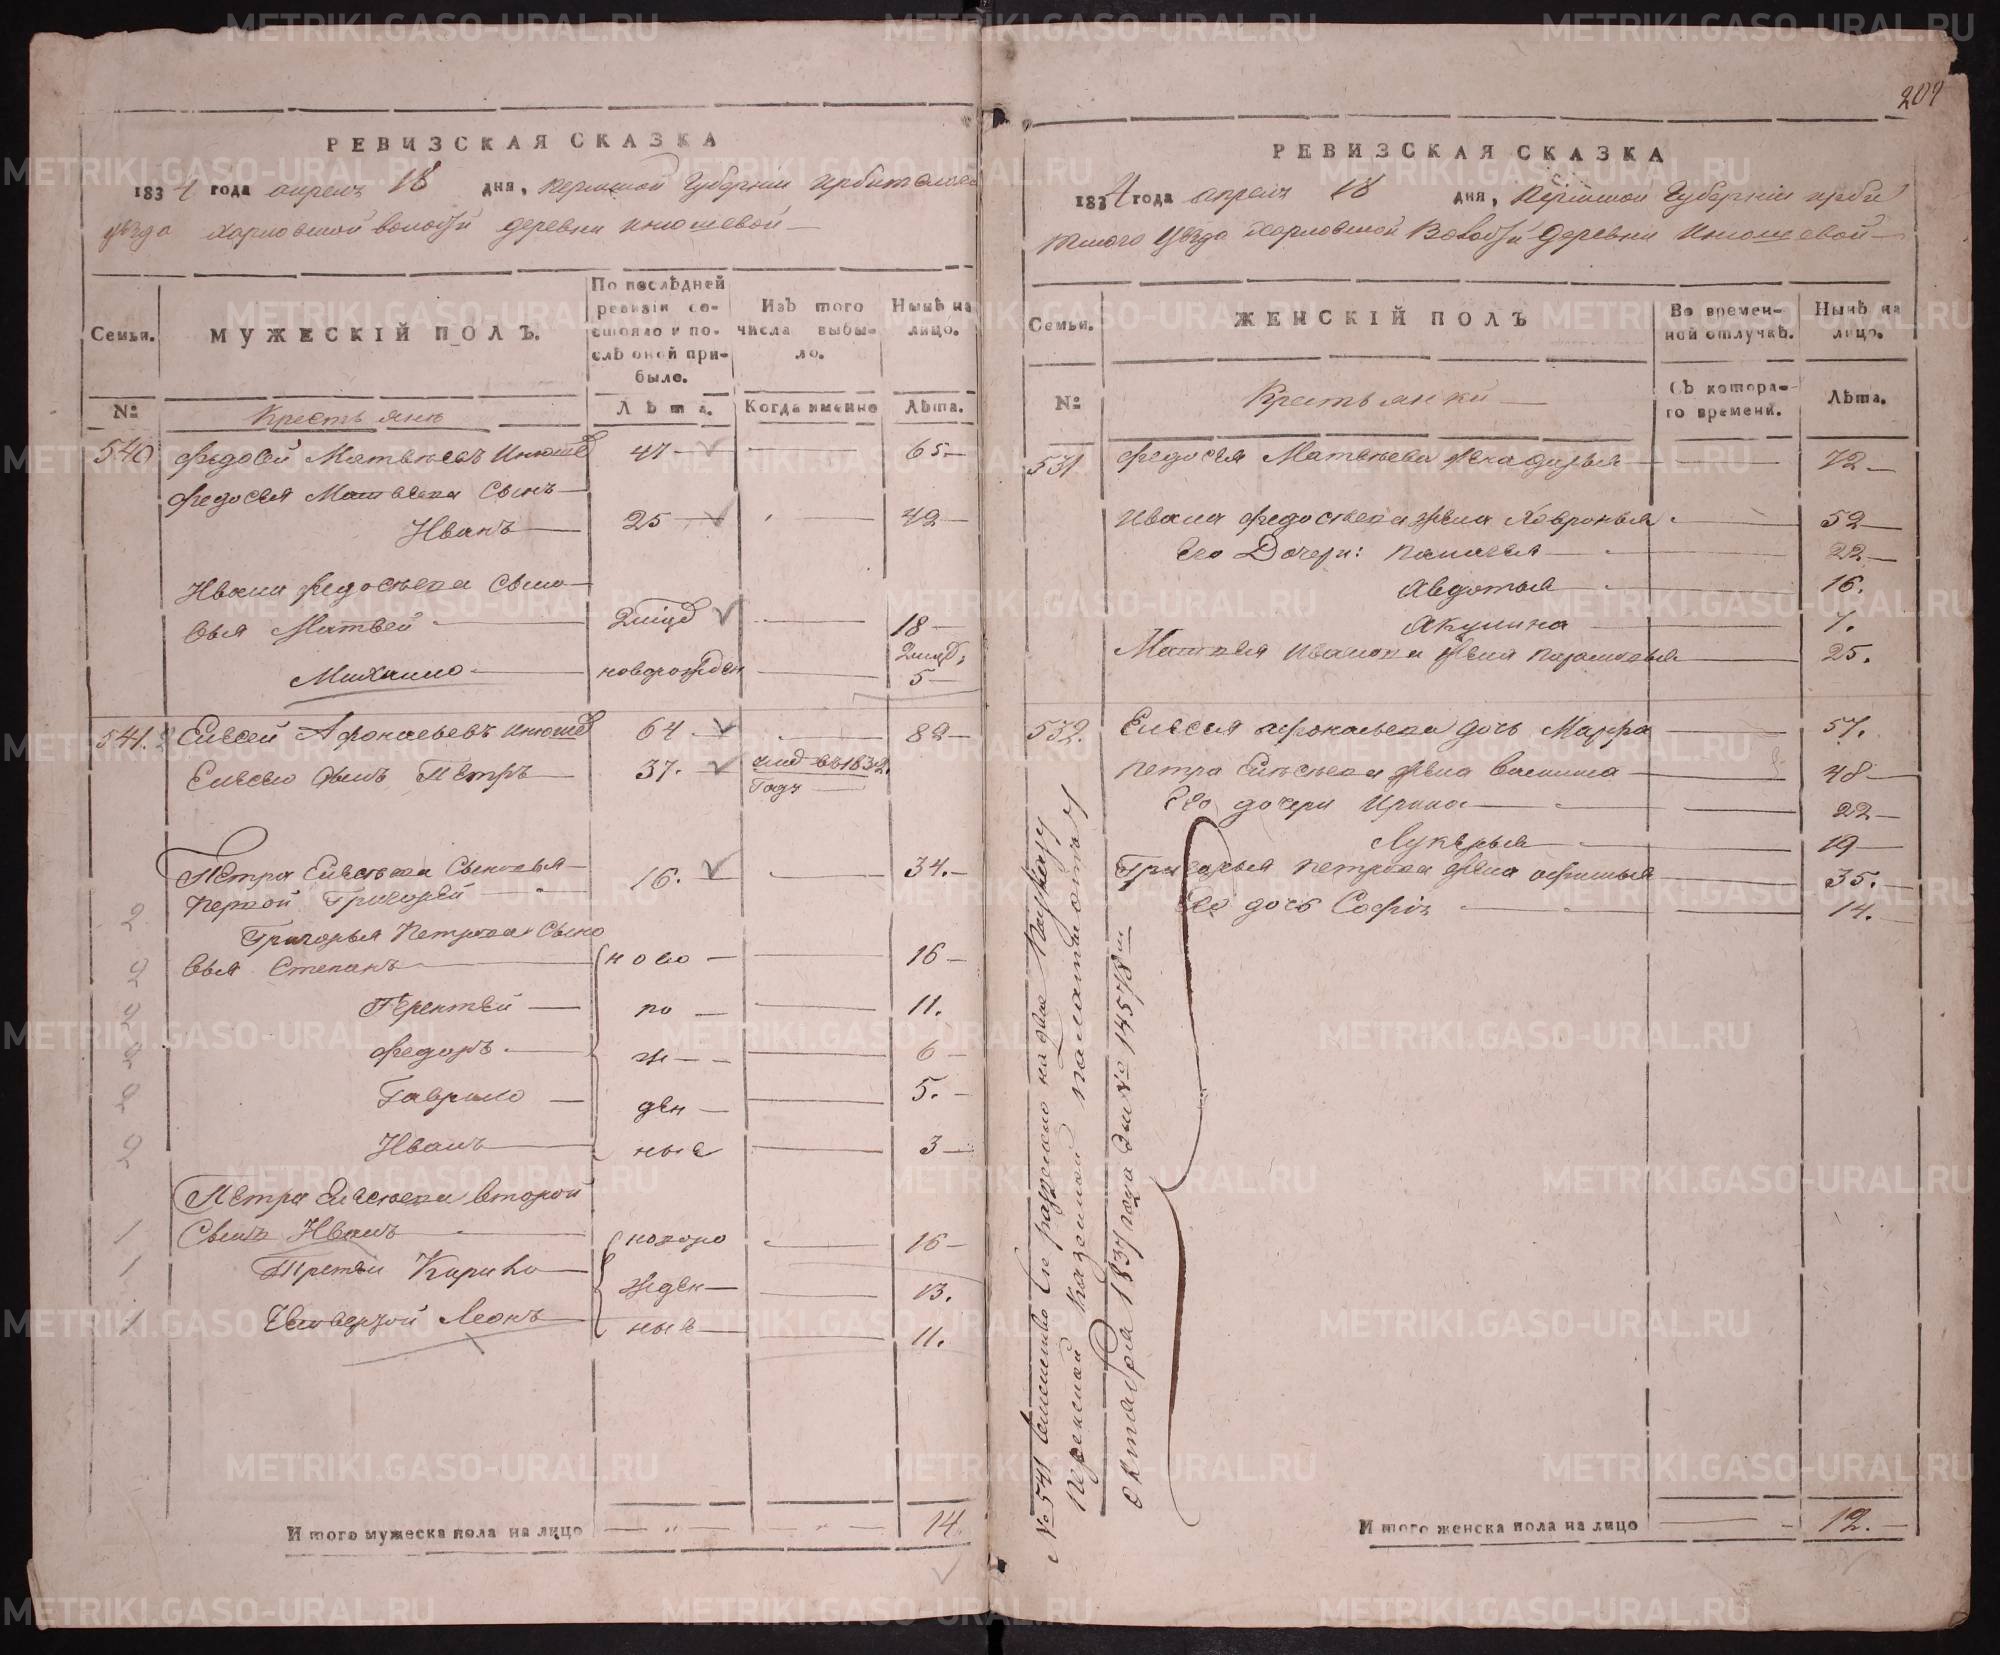 РЕВИЗСКАЯ СКАЗКА
1834 года апреля 18 дня, Пермской Губернии Ирбитскаго
уѣзда Харловской волости деревни Инюшевой
Семьи.
МУЖЕСКІЙ ПОЛЪ.
По послѣдней ревизіи состояло и послѣ оной прибыло.
Изъ того числа выбыло.
Нынѣ на лицо.
№
Крестьянѣ
Лѣта.
Когда именно
Лѣта.
540 Федосей Матвѣевъ Инюшев 47 65
Федосея Матвѣева Сынъ
Иванъ 25 42
Ивана Федосѣева Сыно
вья Матвей 2 18
Михаило новорожден 5
541. Елисей Афонасьевъ Инюшев 64 82
Елисея Сынъ Пётръ 37. въ 1832.
Году
Пётра Елисѣева Сыновья
первой Григорей 16. 34.
2
Григорья Петрова Сыно
2 вья Степанъ ново 16
2 Терентей ро 11.
2 Федоръ ж 6
2 Гаврило ден 5.
2 Иванъ ные 3
Пётра Елисѣева второй
1 Сынъ Иванъ новоро 16
1 Третей Кирило жден 13.
1 Четвертой Леонъ ные 11.
Итого мужеска пола на лицо 14.
209
РЕВИЗСКАЯ СКАЗКА
1834 года апреля 18 дня, Пермской Губерніи Ирби
тского уѣзда Харловской Волости Деревни Инюшевой
Семьи.
ЖЕНСКІЙ ПОЛЪ
Во временной отлучкѣ.
Нынѣ на лицо.
№
Крестьянки
Съ котораго времени.
Лѣта.
531 Федосея Матвѣева жена Дарья 72
Ивана Федосѣева жена Хавронья 52
Его Дочери: Паласея 22
Авдотья 16.
Акулина 7.
Матвея Иванова жена Парасковья 25.
532. Елисея Афонасьева дочь Марфа 57.
Петра Елисѣева жена Василиса 48
Его дочери Ирина 22
Лукерья 19
Григорья Петрова жена Офимья 35.
Его дочь Софія 14.
№ 541 Семейство сіе раздѣлено на двѣ по указу
Пермской Казенной палаты
октября 1837 года за № 14578
Итого женска пола на лицо 12.
METRIKI.GASO-URAL.RU